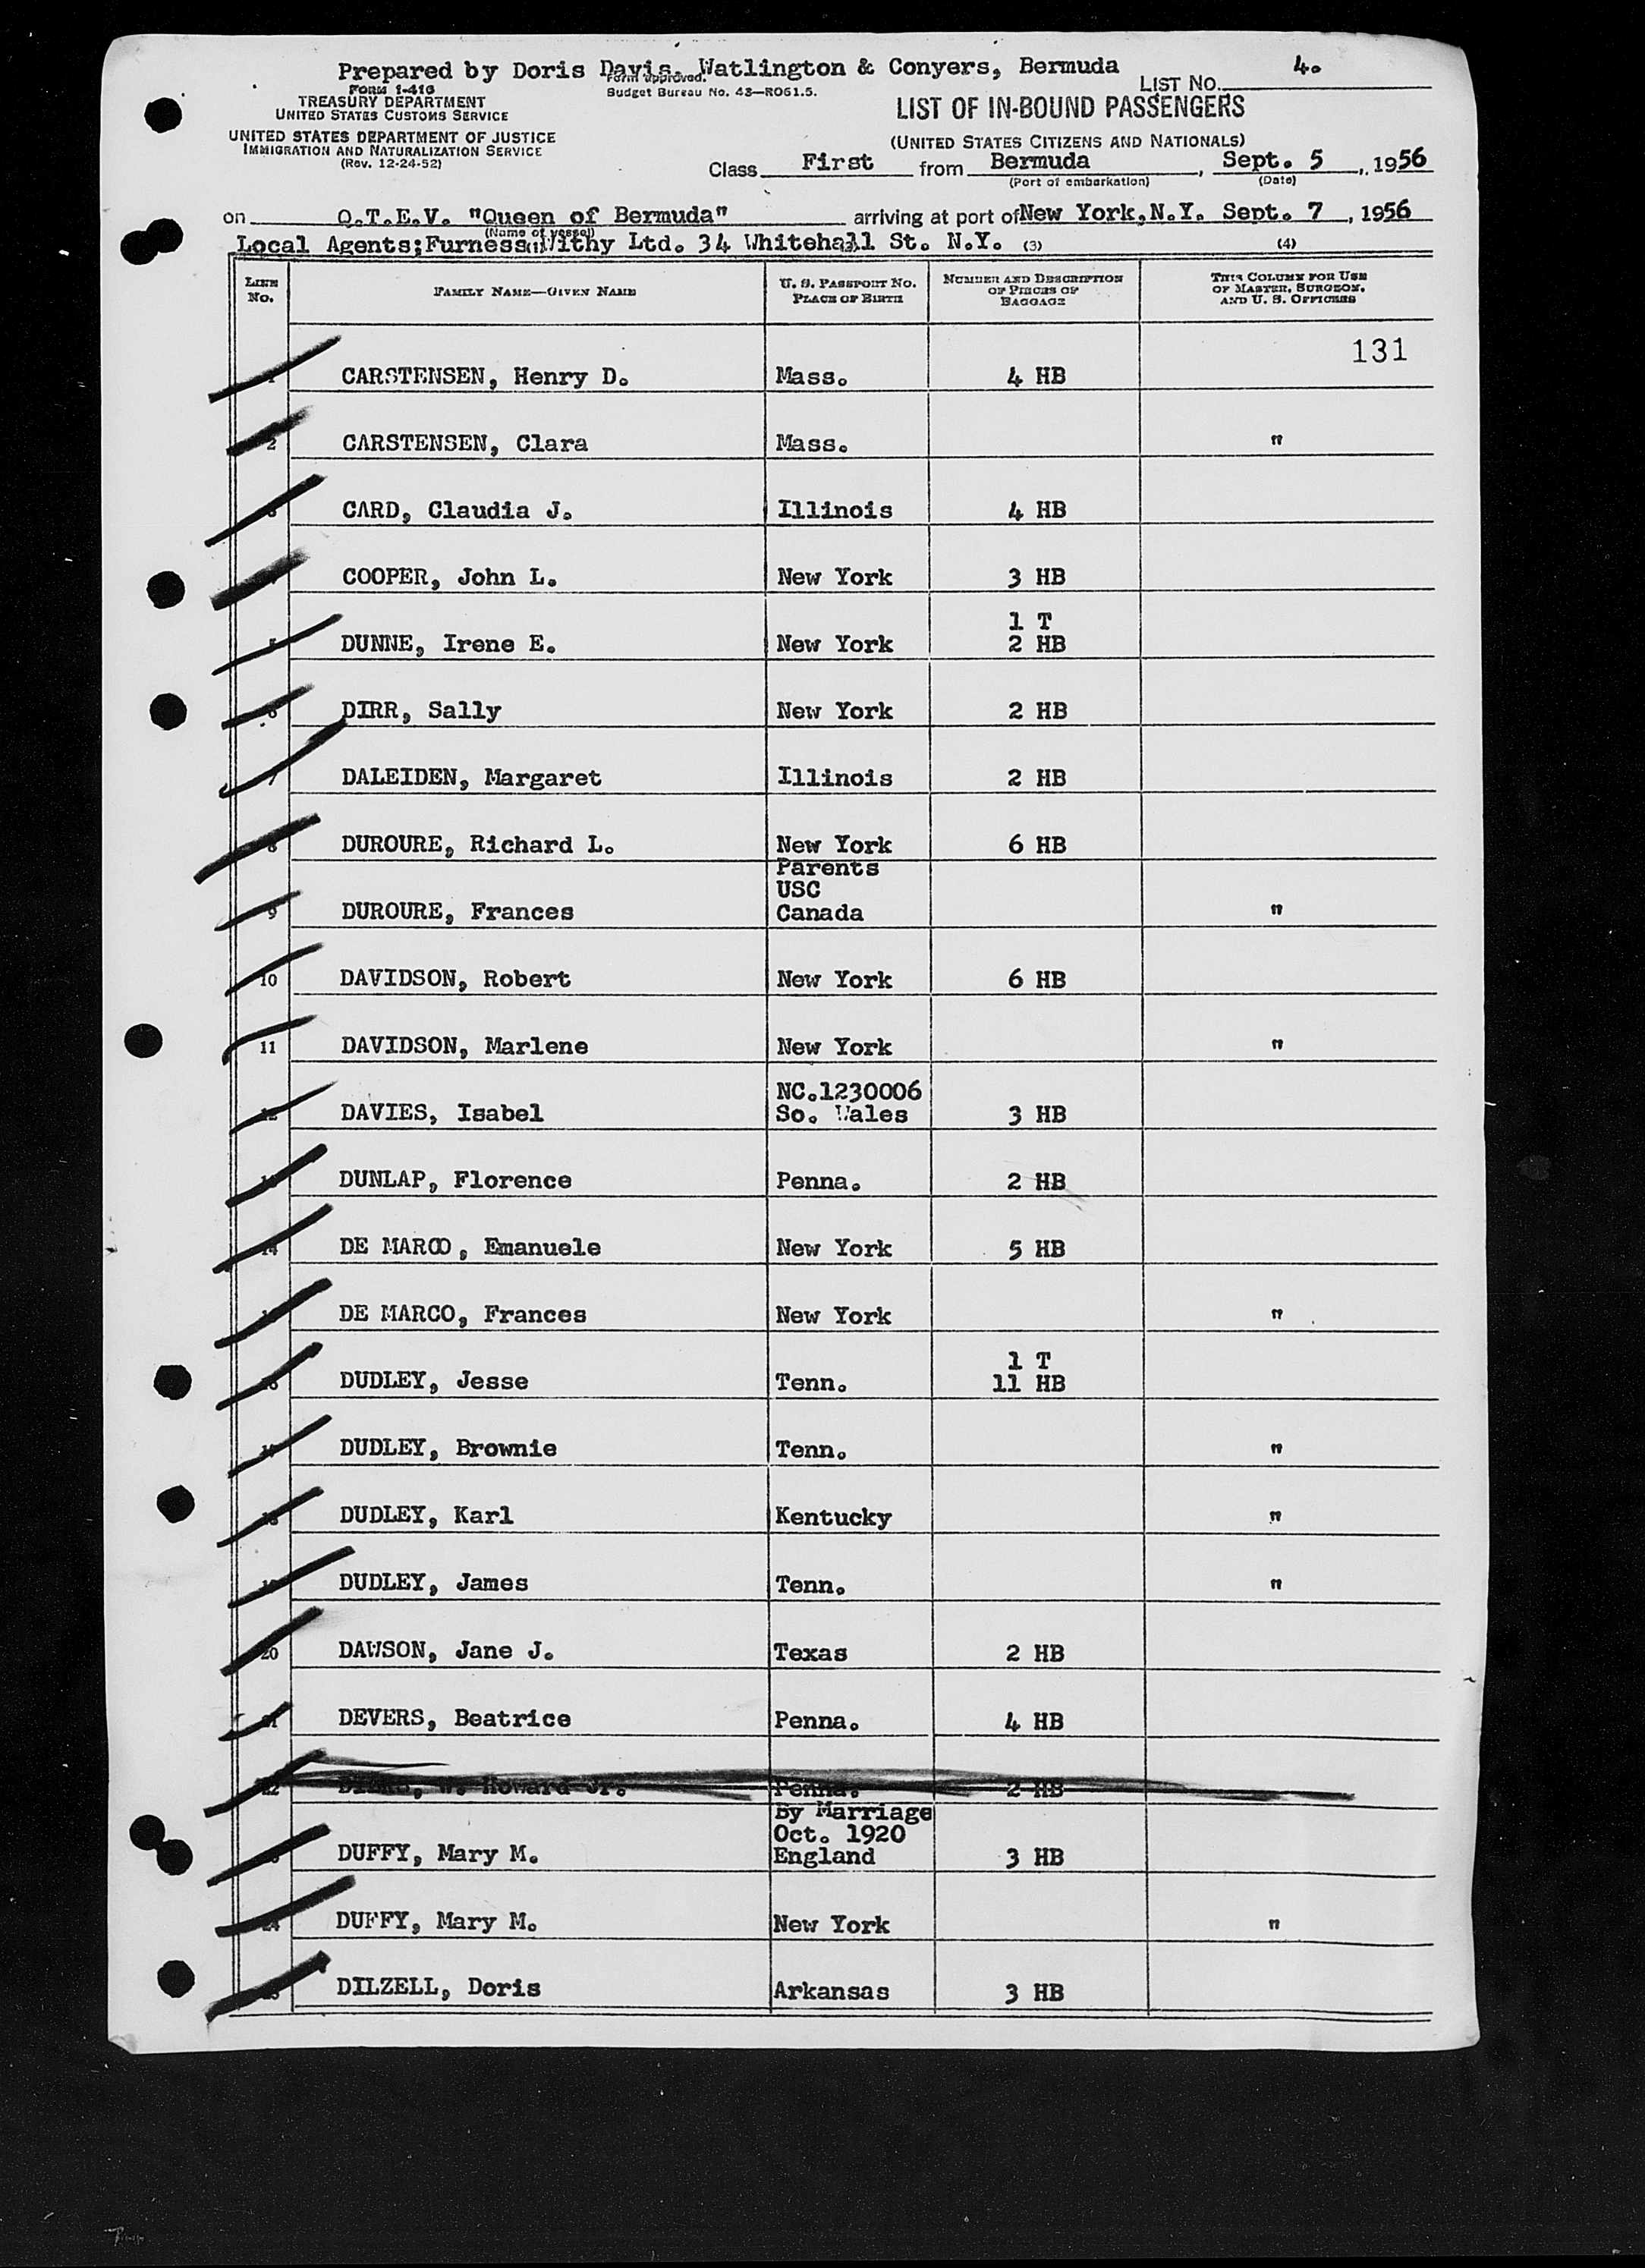 Prepared by Doris Davis, Watlington & Conyers, Bermuda
Form approved.
Budget Bureau No. 43—R061.5.
LIST NO. 4.
FORM I-416
TREASURY DEPARTMENT
UNITED STATES CUSTOMS SERVICE
UNITED STATES DEPARTMENT OF JUSTICE
IMMIGRATION AND NATURALIZATION SERVICE
(Rev. 12-24-52)
LIST OF IN-BOUND PASSENGERS
(UNITED STATES CITIZENS AND NATIONALS)
Class First from Bermuda, Sept. 5, 1956
(Port of embarkation) (Date)
on Q.T.E.V. "Queen of Bermuda" arriving at port of New York, N.Y. Sept. 7, 1956
(Name of vessel)
Local Agents; Furness Withy Ltd. 34 Whitehall St. N.Y. (3) (4)
LINE No. FAMILY NAME—GIVEN NAME U. S. PASSPORT NO. PLACE OF BIRTH NUMBER AND DESCRIPTION OF PIECES OF BAGGAGE THIS COLUMN FOR USE OF MASTER, SURGEON, AND U. S. OFFICERS
131
1 CARSTENSEN, Henry D. Mass. 4 HB
2 CARSTENSEN, Clara Mass. "
3 CARD, Claudia J. Illinois 4 HB
COOPER, John L. New York 3 HB
1 T
5 DUNNE, Irene E. New York 2 HB
6 DIRR, Sally New York 2 HB
7 DALEIDEN, Margaret Illinois 2 HB
8 DUROURE, Richard L. New York 6 HB
Parents
USC
9 DUROURE, Frances Canada "
10 DAVIDSON, Robert New York 6 HB
11 DAVIDSON, Marlene New York "
NC.1230006
12 DAVIES, Isabel So. Wales 3 HB
DUNLAP, Florence Penna. 2 HB
14 DE MARCO, Emanuele New York 5 HB
DE MARCO, Frances New York "
1 T
16 DUDLEY, Jesse Tenn. 11 HB
17 DUDLEY, Brownie Tenn. "
18 DUDLEY, Karl Kentucky "
19 DUDLEY, James Tenn. "
20 DAWSON, Jane J. Texas 2 HB
21 DEVERS, Beatrice Penna. 4 HB
22 W. Howard Jr. Penna. 2 HB
By Marriage
Oct. 1920
DUFFY, Mary M. England 3 HB
24 DUFFY, Mary M. New York "
25 DILZELL, Doris Arkansas 3 HB